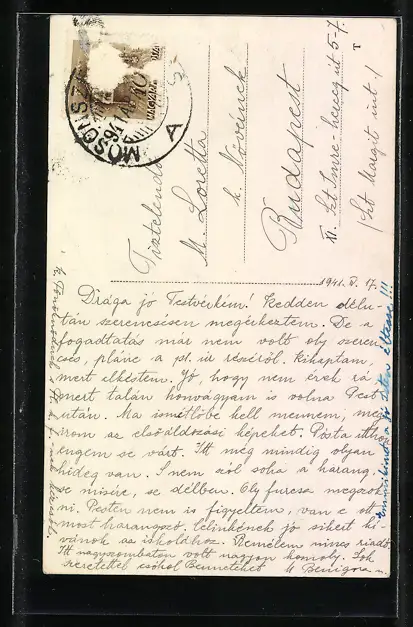 MOSONSZ
941
A
T
Tisztelendő
M. Loretta
h. Nővérnek
Budapest
XI. Szt Imre herceg út 5-7.
(Szt Margit int.)
1941. V. 17.
Drága jó Testvérkém! Kedden délu-
tán szerencsésen megérkeztem. De a
fogadtatás már nem volt oly szeren
csés, pláne a pl. úr részéről. Kikaptam,
mert elkéstem. Jó, hogy nem érek rá
mert talán honvágyam is volna Pest
után. Ma ismétlőbe kell mennem, meg
írom az elsőáldozási képeket. Posta itthon
engem se várt. Itt még mindig olyan
hideg van. S nem szól soha a harang,
se misére, se délben. Oly furcsa megszok
ni. Pesten nem is figyeltem, van e ott
most harangszó. Celinkének jó sikert kí
vánok az iskolához. Remélem nincs riadó.
Itt nagyszombaton volt nagyon komoly. Sok
szeretettel csókol Benneteket M. Benigna
a jó Isten éltesse!!!